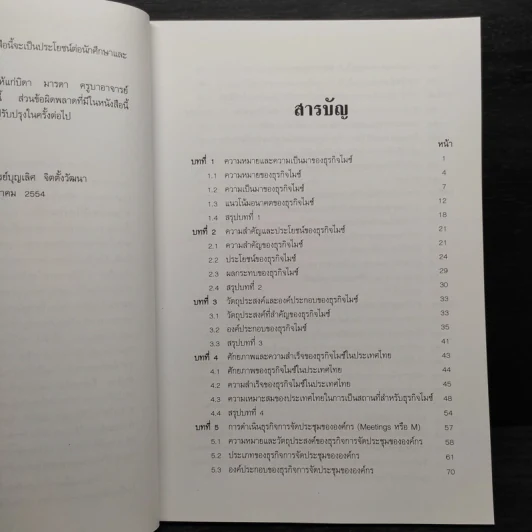 สือนี้จะเป็นประโยชน์ต่อนักศึกษาและ
ห้แก่บิดา มารดา ครูบาอาจารย์
นี้ ส่วนข้อผิดพลาดที่มีในหนังสือนี้
ปรับปรุงในครั้งต่อไป
รย์บุญเลิศ จิตตั้งวัฒนา
าคม 2554
สารบัญ
หน้า
บทที่ 1 ความหมายและความเป็นมาของธุรกิจไมซ์ 1
1.1 ความหมายของธุรกิจไมซ์ 4
1.2 ความเป็นมาของธุรกิจไมซ์ 7
1.3 แนวโน้มอนาคตของธุรกิจไมซ์ 12
1.4 สรุปบทที่ 1 18
บทที่ 2 ความสำคัญและประโยชน์ของธุรกิจไมซ์ 21
2.1 ความสำคัญของธุรกิจไมซ์ 21
2.2 ประโยชน์ของธุรกิจไมซ์ 24
2.3 ผลกระทบของธุรกิจไมซ์ 29
2.4 สรุปบทที่ 2 30
บทที่ 3 วัตถุประสงค์และองค์ประกอบของธุรกิจไมซ์ 33
3.1 วัตถุประสงค์ที่สำคัญของธุรกิจไมซ์ 33
3.2 องค์ประกอบของธุรกิจไมซ์ 35
3.3 สรุปบทที่ 3 41
บทที่ 4 ศักยภาพและความสำเร็จของธุรกิจไมซ์ในประเทศไทย 43
4.1 ศักยภาพของธุรกิจไมซ์ในประเทศไทย 44
4.2 ความสำเร็จของธุรกิจไมซ์ในประเทศไทย 45
4.3 ความเหมาะสมของประเทศไทยในการเป็นสถานที่สำหรับธุรกิจไมซ์ 48
4.4 สรุปบทที่ 4 54
บทที่ 5 การดำเนินธุรกิจการจัดประชุมขององค์กร (Meetings หรือ M) 57
5.1 ความหมายและวัตถุประสงค์ของธุรกิจการจัดประชุมขององค์กร 58
5.2 ประเภทของธุรกิจการจัดประชุมขององค์กร 61
5.3 องค์ประกอบของธุรกิจการจัดประชุมขององค์กร 70